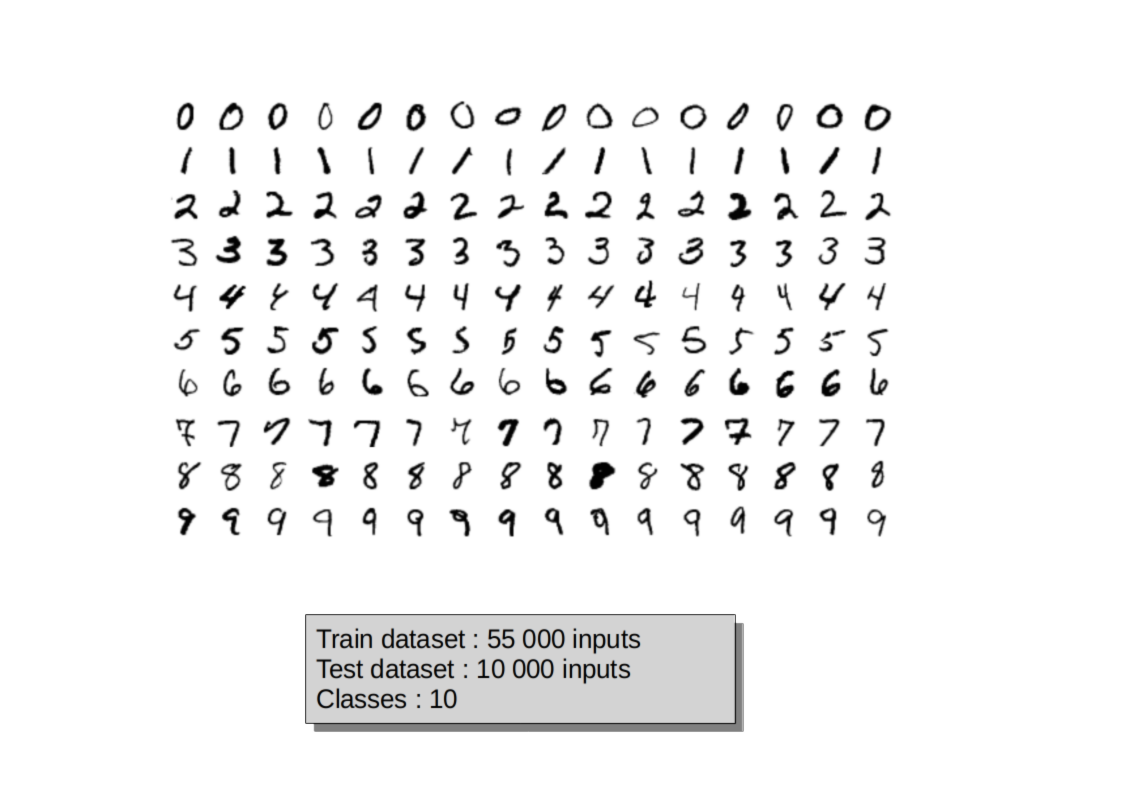 0 0 0 0 0 0 0 0 0 0 0 0 0 0 0 0
1 1 1 1 1 1 1 1 1 1 1 1 1 1 1 1
2 2 2 2 2 2 2 2 2 2 2 2 2 2 2 2
3 3 3 3 3 3 3 3 3 3 3 3 3 3 3 3
4 4 4 4 4 4 4 4 4 4 4 4 4 4 4 4
5 5 5 5 5 5 5 5 5 5 5 5 5 5 5 5
6 6 6 6 6 6 6 6 6 6 6 6 6 6 6 6
7 7 7 7 7 7 7 7 7 7 7 7 7 7 7 7
8 8 8 8 8 8 8 8 8 8 8 8 8 8 8 8
9 9 9 9 9 9 9 9 9 9 9 9 9 9 9 9
Train dataset : 55 000 inputs
Test dataset : 10 000 inputs
Classes : 10